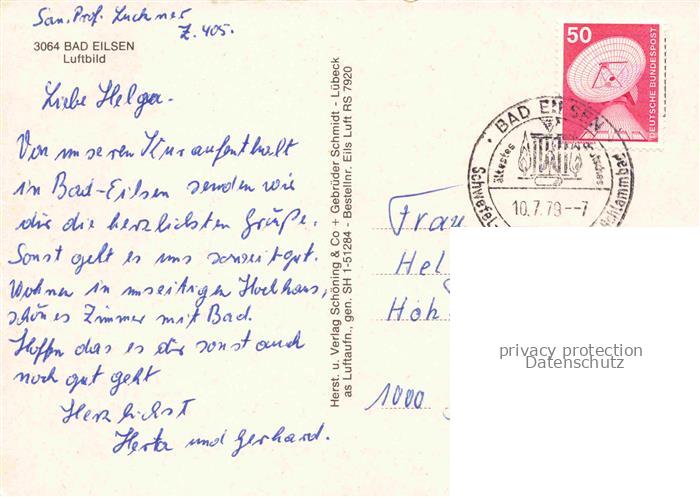 San. Prof. Luchner
Z. 405.
3064 BAD EILSEN
Luftbild
Liebe Helga.
Von unseren Kuraufenthalt
in Bad-Eilsen senden wir
dir die herzlichsten Grüße.
Sonst geht es uns soweit gut.
Wohnen in unseitigen Hochhaus,
schönes Zimmer mit Bad.
Hoffen das es dir sonst auch
noch gut geht
Herzlichst
Herta und Gerhard.
Herst. u. Verlag Schöning & Co + Gebrüder Schmidt - Lübeck
as Luftaufn., gen. SH 1-51284 - Bestellnr. Eils Luft RS 7920
50
DEUTSCHE BUNDESPOST
BAD EILSEN
ältestes
Schwefel-
schlammbad
10.7.79--7
Frau
Hel
Hoh
1000
privacy protection
Datenschutz